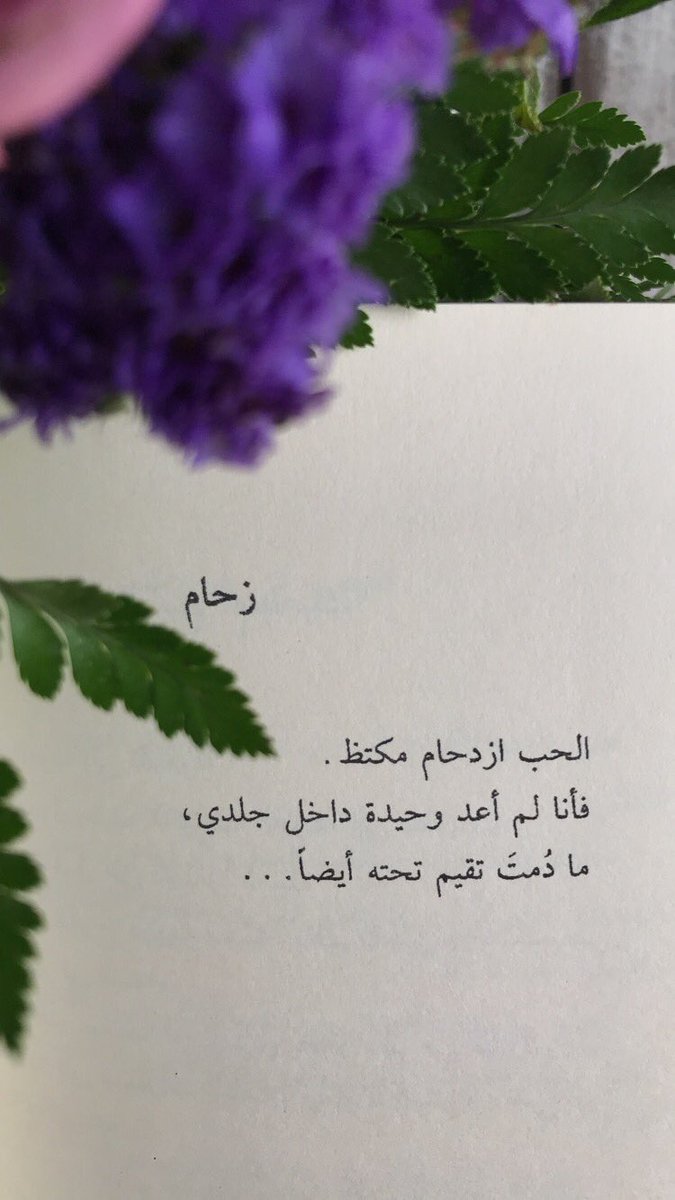 زحام
الحب ازدحام مكتظ.
فأنا لم أعد وحيدة داخل جلدي،
ما دُمتَ تقيم تحته أيضاً...